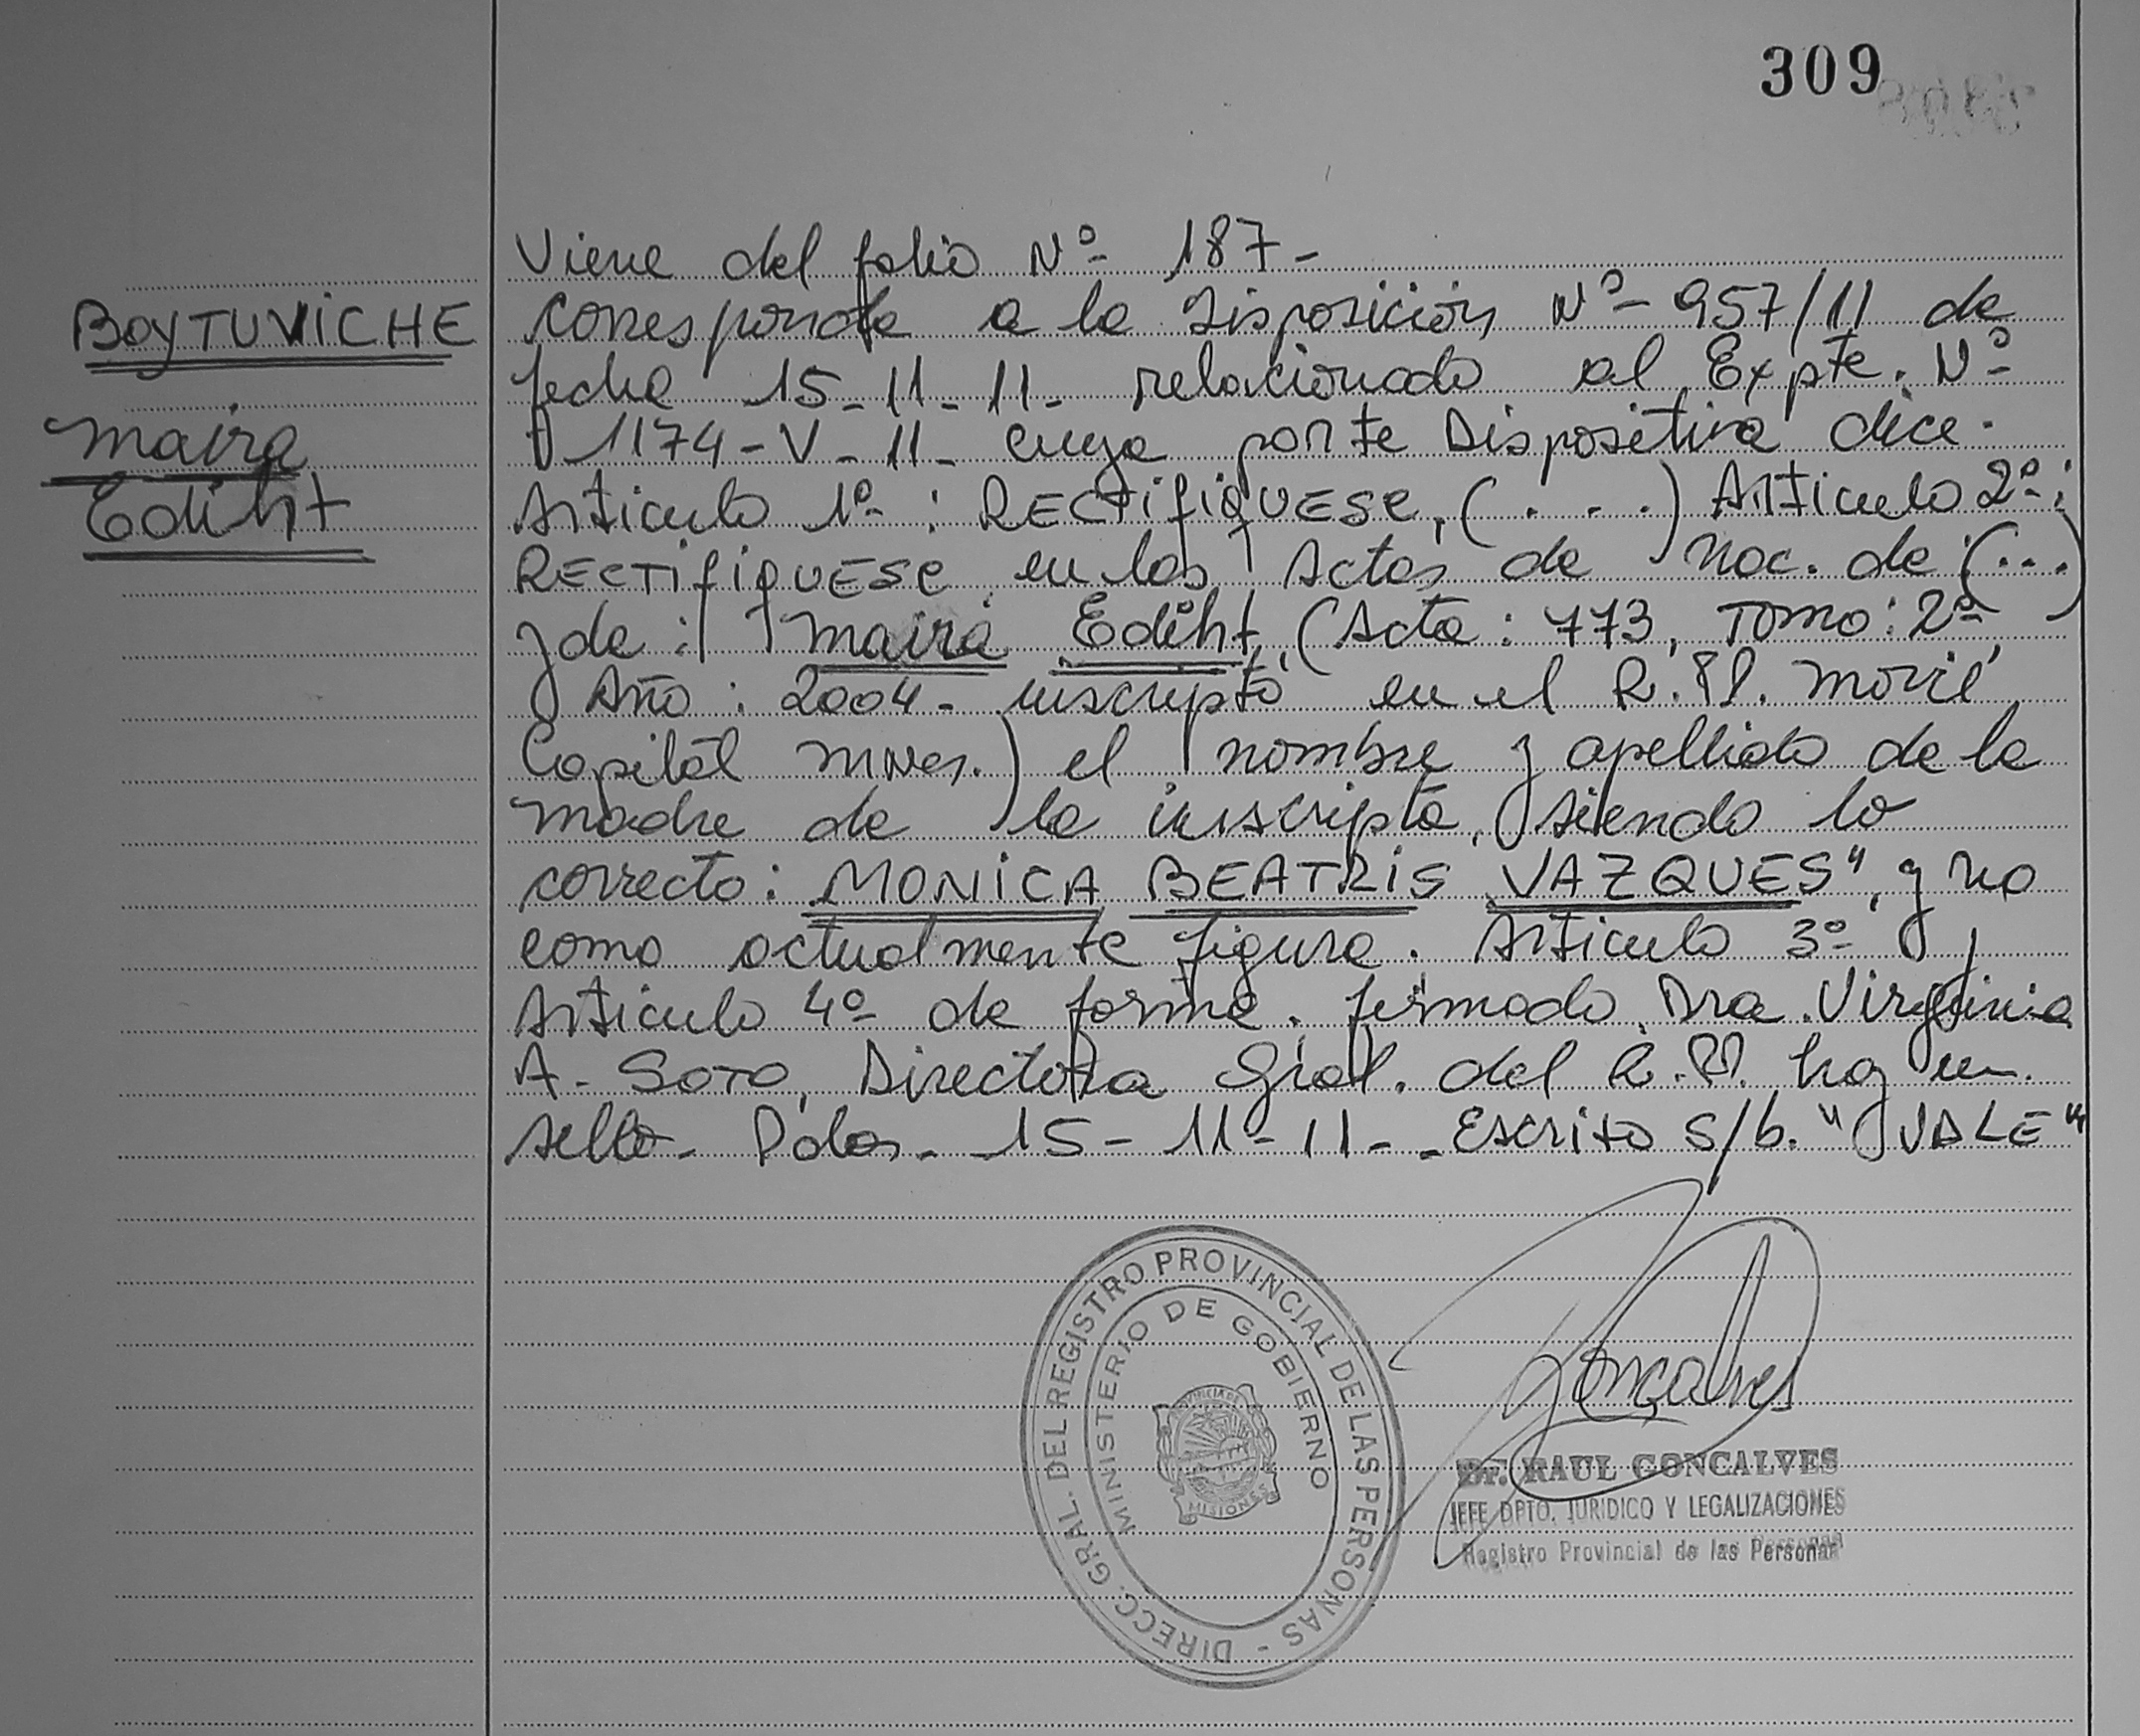 309
Viene del folio Nº 187-
BOYTUVICHE
Corresponde a la Disposición Nº- 957/11 de
fecha 15-11-11- relacionado al Expte. Nº-
Maira
1174-V-11- cuya parte Dispositiva dice.
Edi̇ht
Articulo 1º : RECTIFIQUESE, (...) Articulo 2º:
RECTIFIQUESE en las Actas de Nac. de (...)
y de : Maira Ediht, (Acta : 773, Tomo: 2º-
Año : 2004- inscripta en el R.P. Movil
Capital Mnes.) el nombre y apellido de la
madre de la inscripta, siendo lo
correcto: MONICA BEATRIS VAZQUES", y no
como actualmente figura. Articulo 3º y
Articulo 4º de forma. firmado. Dra. Virginia
A. Soto, Directora Gral. del R.P. hay un
sello- Pdas- 15-11-11-- Escrito s/b. "VALE"
DIRECC. GRAL. DEL REGISTRO PROVINCIAL DE LAS PERSONAS -
MINISTERIO DE GOBIERNO
PROVINCIA DE
MISIONES
Goncalves
Dr. RAUL GONCALVES
JEFE DPTO. JURIDICO Y LEGALIZACIONES
Registro Provincial de las Personas